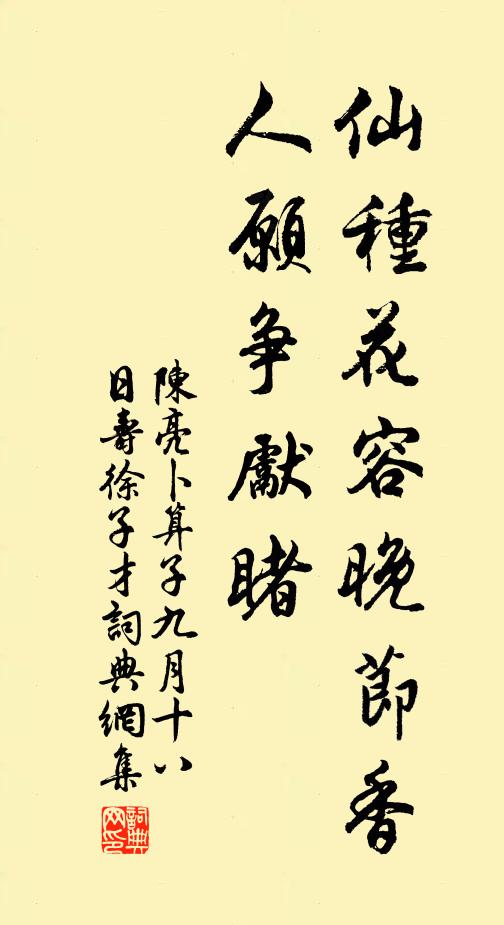 仙種花容晚節香
人願爭獻睹
陳亮卜算子九月十八
日壽徐子才詞典網集
詞典
网印